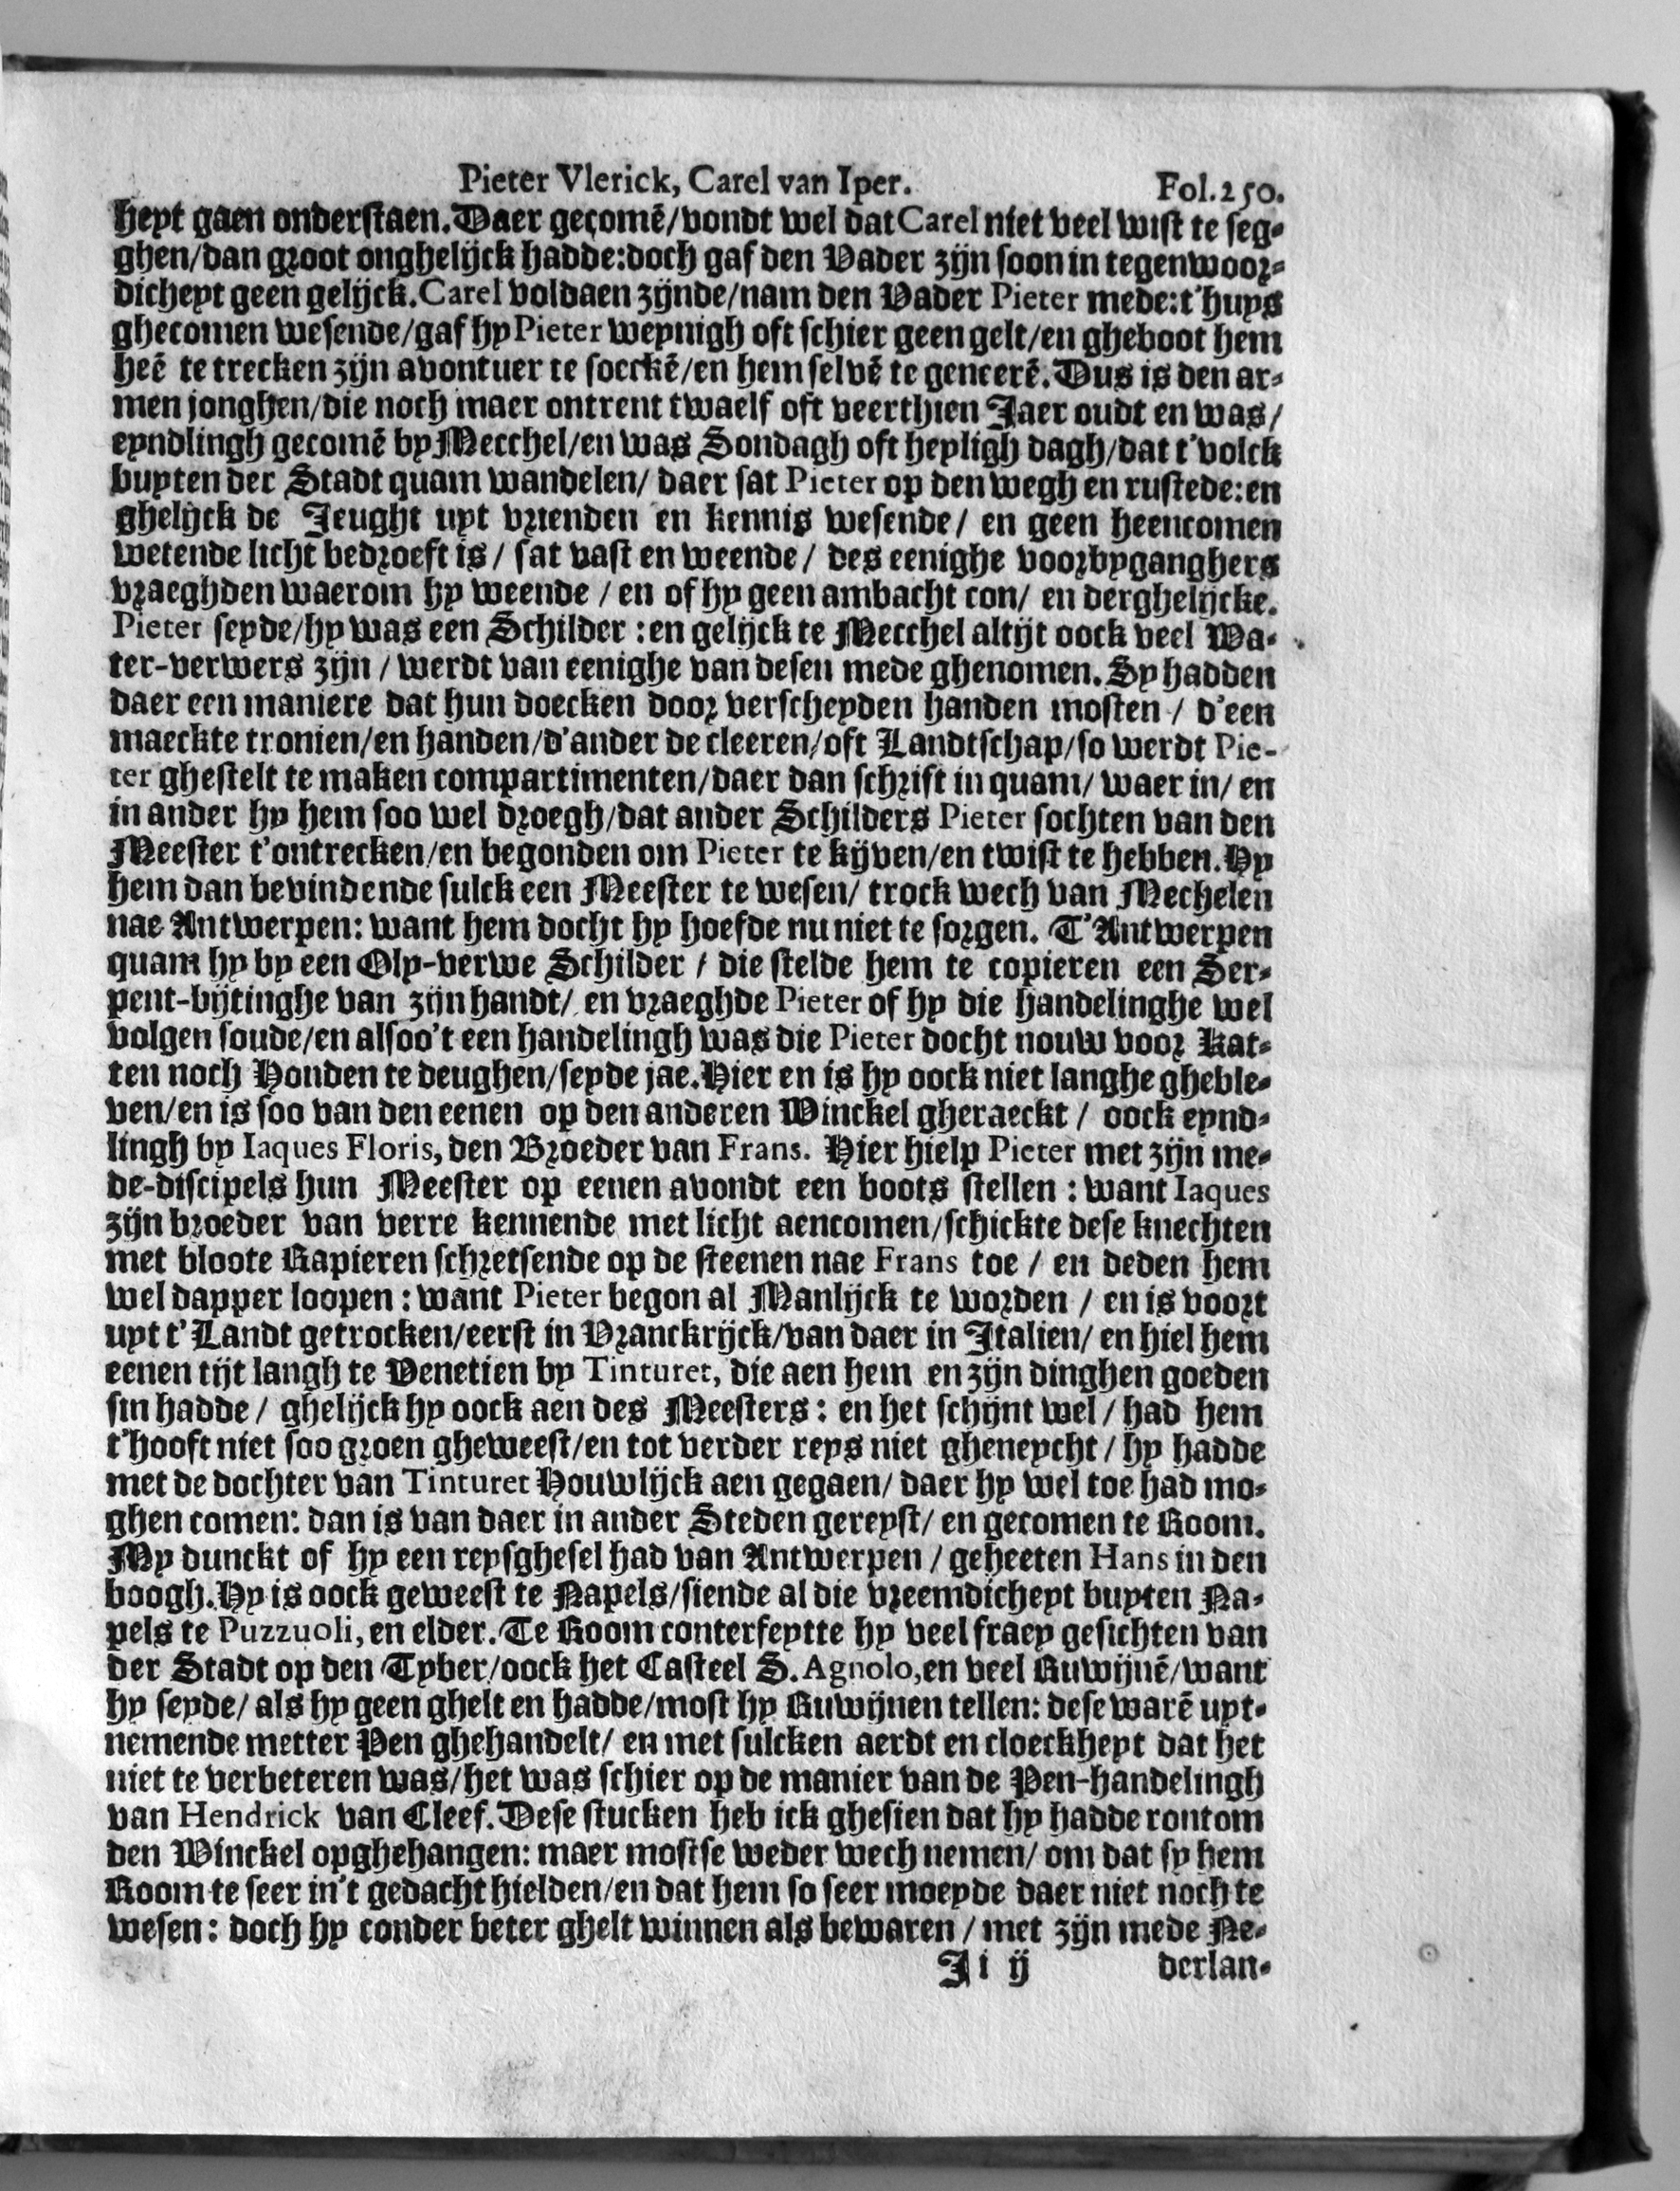 Pieter Vlerick, Carel van Iper. Fol. 250.
heyt gaen onderstaen. Daer gecomē/vondt wel dat Carel niet veel wist te seg-
ghen/dan groot onghelijck hadde: doch gaf den Vader zijn soon in tegenwoor-
dicheyt geen gelijck. Carel voldaen zijnde/nam den Vader Pieter mede: t'huys
ghecomen wesende/gaf hy Pieter weynigh oft schier geen gelt/en gheboot hem
heē te trecken zijn avontuer te soeckē/en hem selvē te geneerē. Dus is den ar-
men jonghen/die noch maer ontrent twaelf oft veerthien Jaer oudt en was/
eyndlingh gecomē by Mecchel/en was Sondagh oft heyligh dagh/dat t'volck
buyten der Stadt quam wandelen/ daer sat Pieter op den wegh en rustede: en
ghelijck de Jeught uyt vrienden en kennis wesende/ en geen heencomen
wetende licht bedroeft is/ sat vast en weende/ des eenighe voorbyganghers
vraeghden waerom hy weende / en of hy geen ambacht con/ en derghelijcke.
Pieter seyde/hy was een Schilder : en gelijck te Mecchel altijt oock veel Wa-
ter-verwers zijn / werdt van eenighe van desen mede ghenomen. Sy hadden
daer een maniere dat hun doecken door verscheyden handen mosten / d'een
maeckte tronien/en handen/d'ander de cleeren/oft Landtschap/so werdt Pie-
ter ghestelt te maken compartimenten/daer dan schrift in quam/ waer in/ en
in ander hy hem soo wel droegh/dat ander Schilders Pieter sochten van den
Meester t'ontrecken/en begonden om Pieter te kijven/en twist te hebben. Hy
hem dan bevindende sulck een Meester te wesen/ trock wech van Mechelen
nae Antwerpen: want hem docht hy hoefde nu niet te sorgen. T'Antwerpen
quam hy by een Oly-verwe Schilder / die stelde hem te copieren een Ser-
pent-bijtinghe van zijn handt/ en vraeghde Pieter of hy die handelinghe wel
volgen soude/en alsoo't een handelingh was die Pieter docht nouw voor Kat-
ten noch Honden te deughen/seyde jae. Hier en is hy oock niet langhe gheble-
ven/en is soo van den eenen op den anderen Winckel gheraeckt / oock eynd-
lingh by Iaques Floris, den Broeder van Frans. Hier hielp Pieter met zijn me-
de-discipels hun Meester op eenen avondt een boots stellen : want Iaques
zijn broeder van verre kennende met licht aencomen/schickte dese knechten
met bloote Rapieren schretsende op de steenen nae Frans toe / en deden hem
wel dapper loopen : want Pieter begon al Manlijck te worden / en is voort
uyt t'Landt getrocken/eerst in Vranckrijck/van daer in Italien/ en hiel hem
eenen tijt langh te Venetien by Tinturet, die aen hem en zijn dinghen goeden
sin hadde / ghelijck hy oock aen des Meesters : en het schijnt wel / had hem
t'hooft niet soo groen gheweest/en tot verder reys niet gheneycht / hy hadde
met de dochter van Tinturet Houwlijck aen gegaen/ daer hy wel toe had mo-
ghen comen: dan is van daer in ander Steden gereyst/ en gecomen te Room.
My dunckt of hy een reysghesel had van Antwerpen / geheeten Hans in den
boogh. Hy is oock geweest te Napels/siende al die vreemdicheyt buyten Na-
pels te Puzzuoli, en elder. Te Room conterfeytte hy veel fraey gesichten van
der Stadt op den Tyber/oock het Casteel S. Agnolo, en veel Ruwijnē/want
hy seyde/ als hy geen ghelt en hadde/most hy Ruwijnen tellen: dese warē uyt-
nemende metter Pen ghehandelt/ en met sulcken aerdt en cloeckheyt dat het
niet te verbeteren was/het was schier op de manier van de Pen-handelingh
van Hendrick van Cleef. Dese stucken heb ick ghesien dat hy hadde rontom
den Winckel opghehangen: maer mostse weder wech nemen/ om dat sy hem
Room te seer in't gedacht hielden/en dat hem so seer moeyde daer niet noch te
wesen : doch hy conder beter ghelt winnen als bewaren / met zijn mede Ne-
Ji ij derlan-